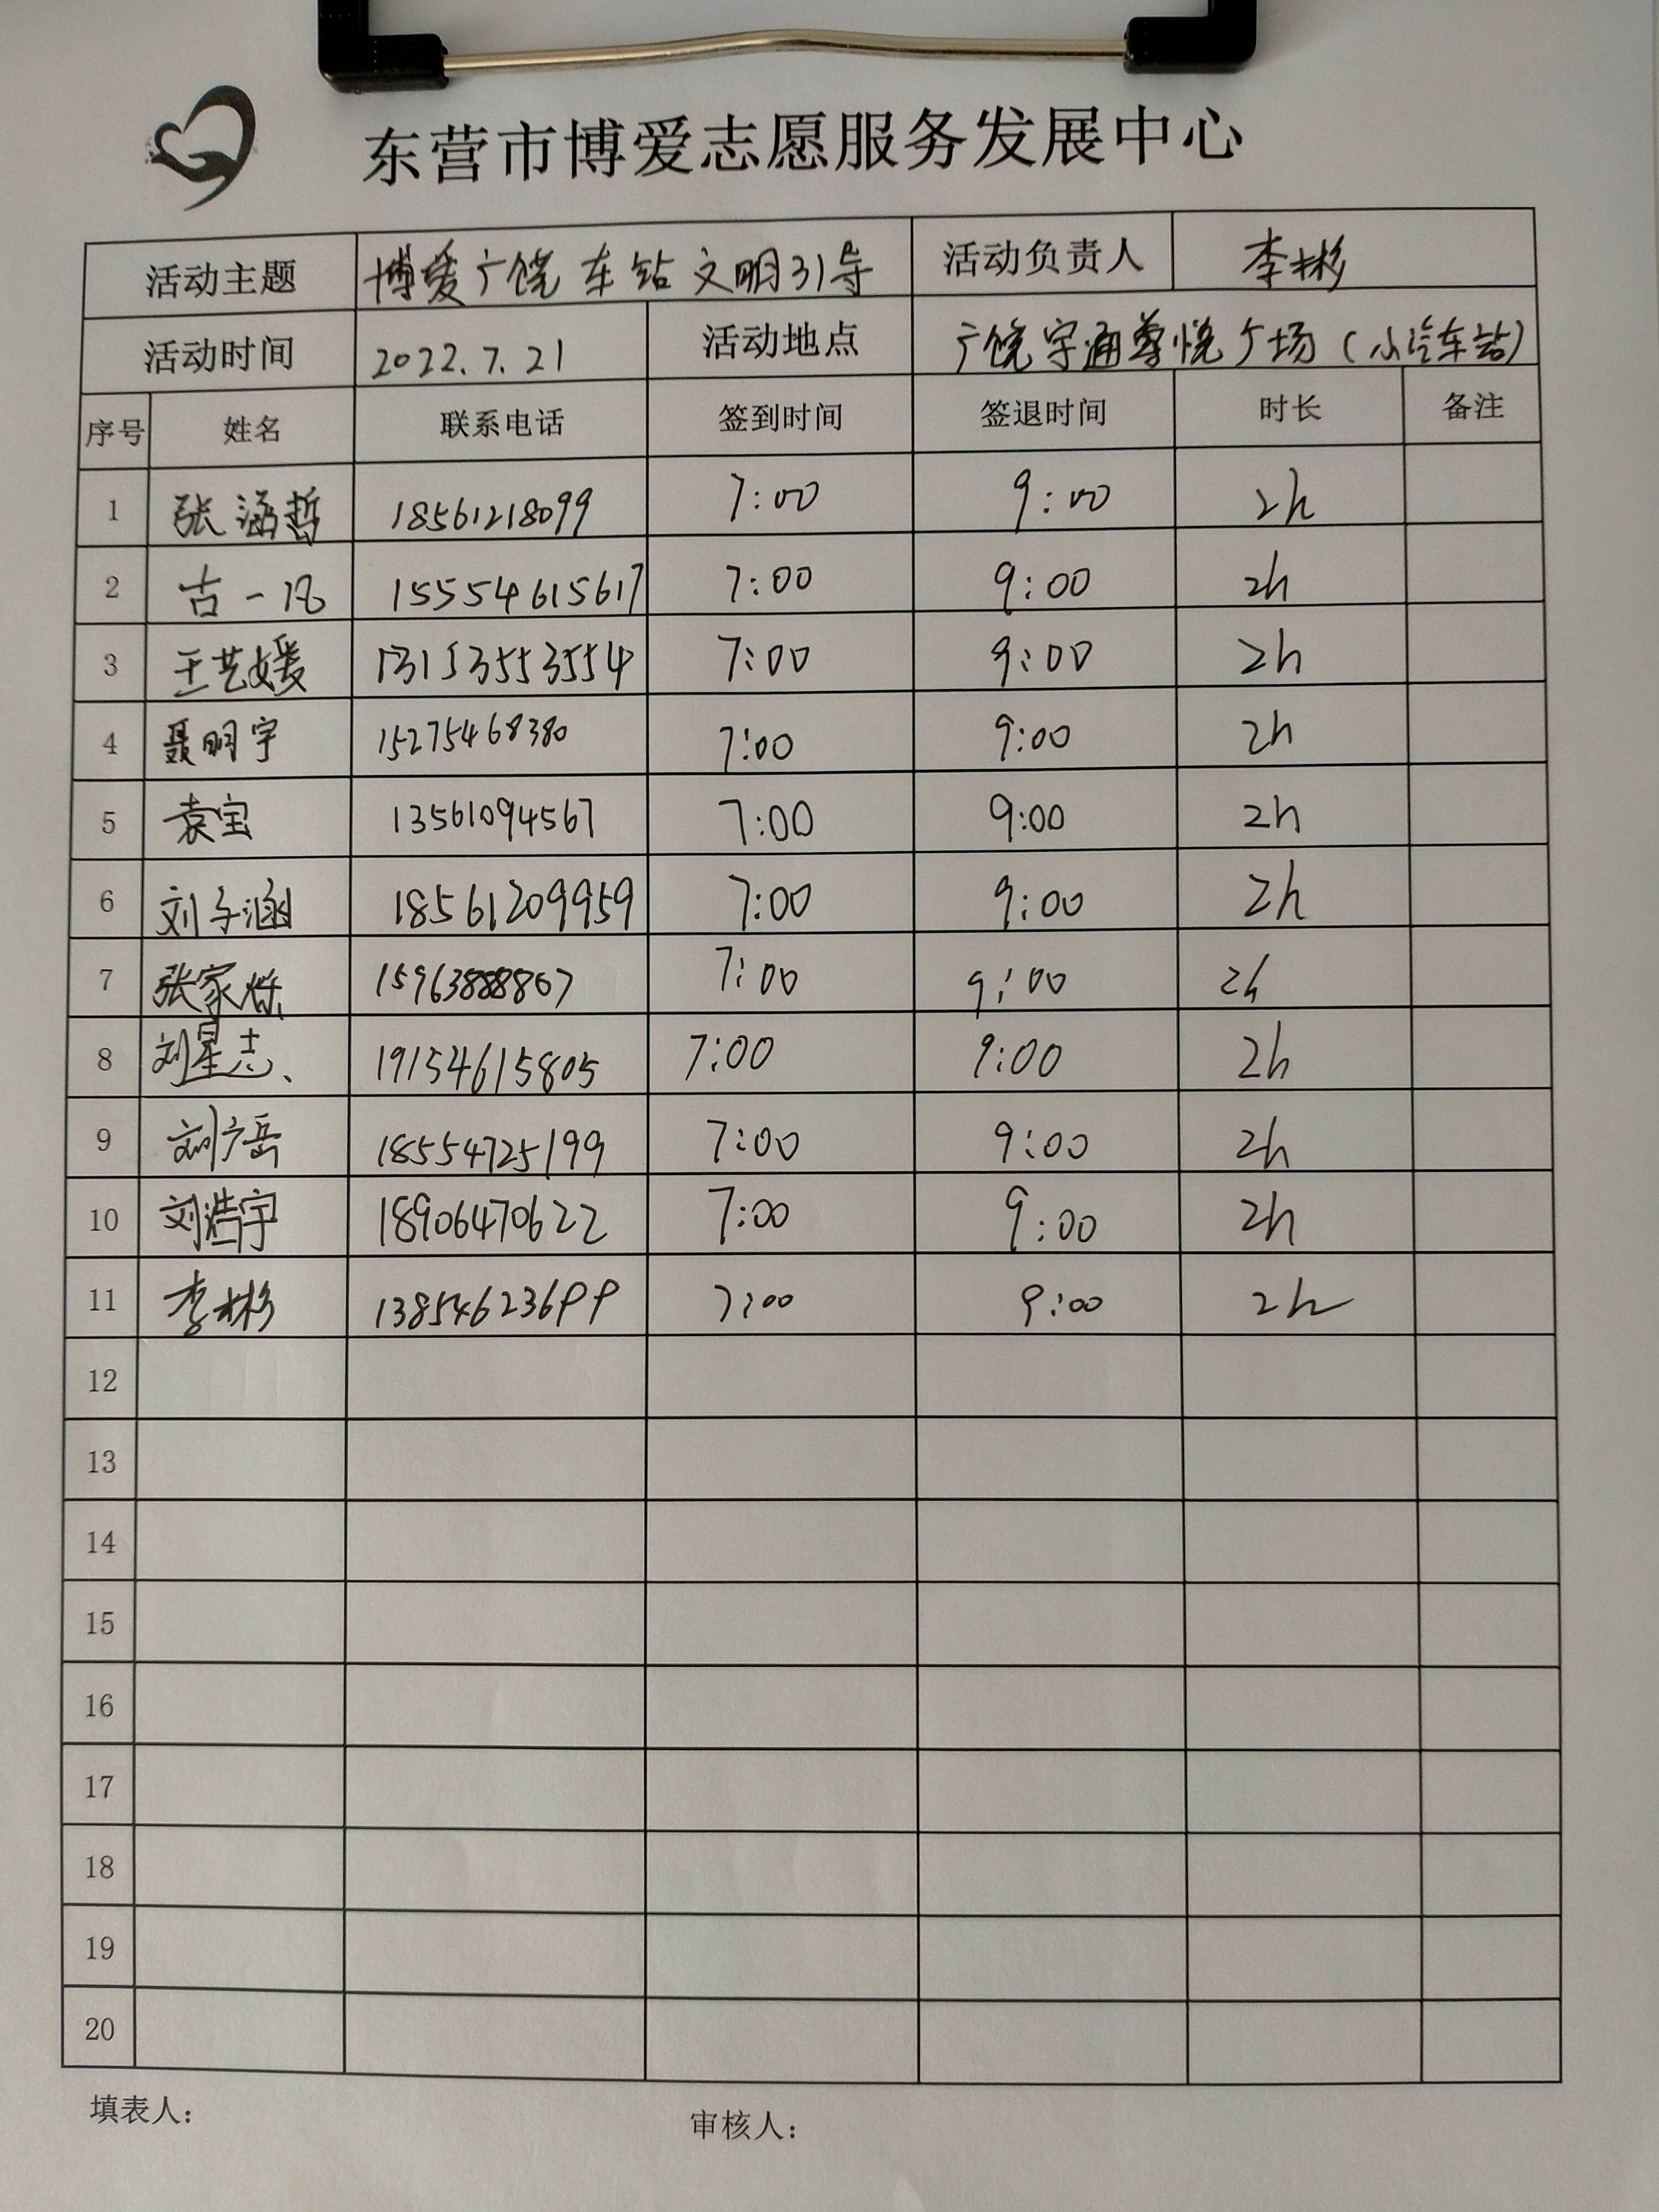 东营市博爱志愿服务发展中心
活动主题 博爱广饶车站文明引导 活动负责人 李彬
活动时间 2022.7.21 活动地点 广饶宇通尊悦广场（小汽车站）
序号 姓名 联系电话 签到时间 签退时间 时长 备注
1 张涵哲 18561218099 7:00 9:00 2h
2 古一凡 15554615617 7:00 9:00 2h
3 王艺媛 13153553554 7:00 9:00 2h
4 聂明宇 15275468380 7:00 9:00 2h
5 袁宝 13561094567 7:00 9:00 2h
6 刘子涵 18561209959 7:00 9:00 2h
7 张家烁 7:00 9:00 2h
8 刘星志 19154615805 7:00 9:00 2h
9 刘广岳 18554725199 7:00 9:00 2h
10 刘浩宇 18906470622 7:00 9:00 2h
11 李彬 13854623699 7:00 9:00 2h
12
13
14
15
16
17
18
19
20
填表人： 审核人：